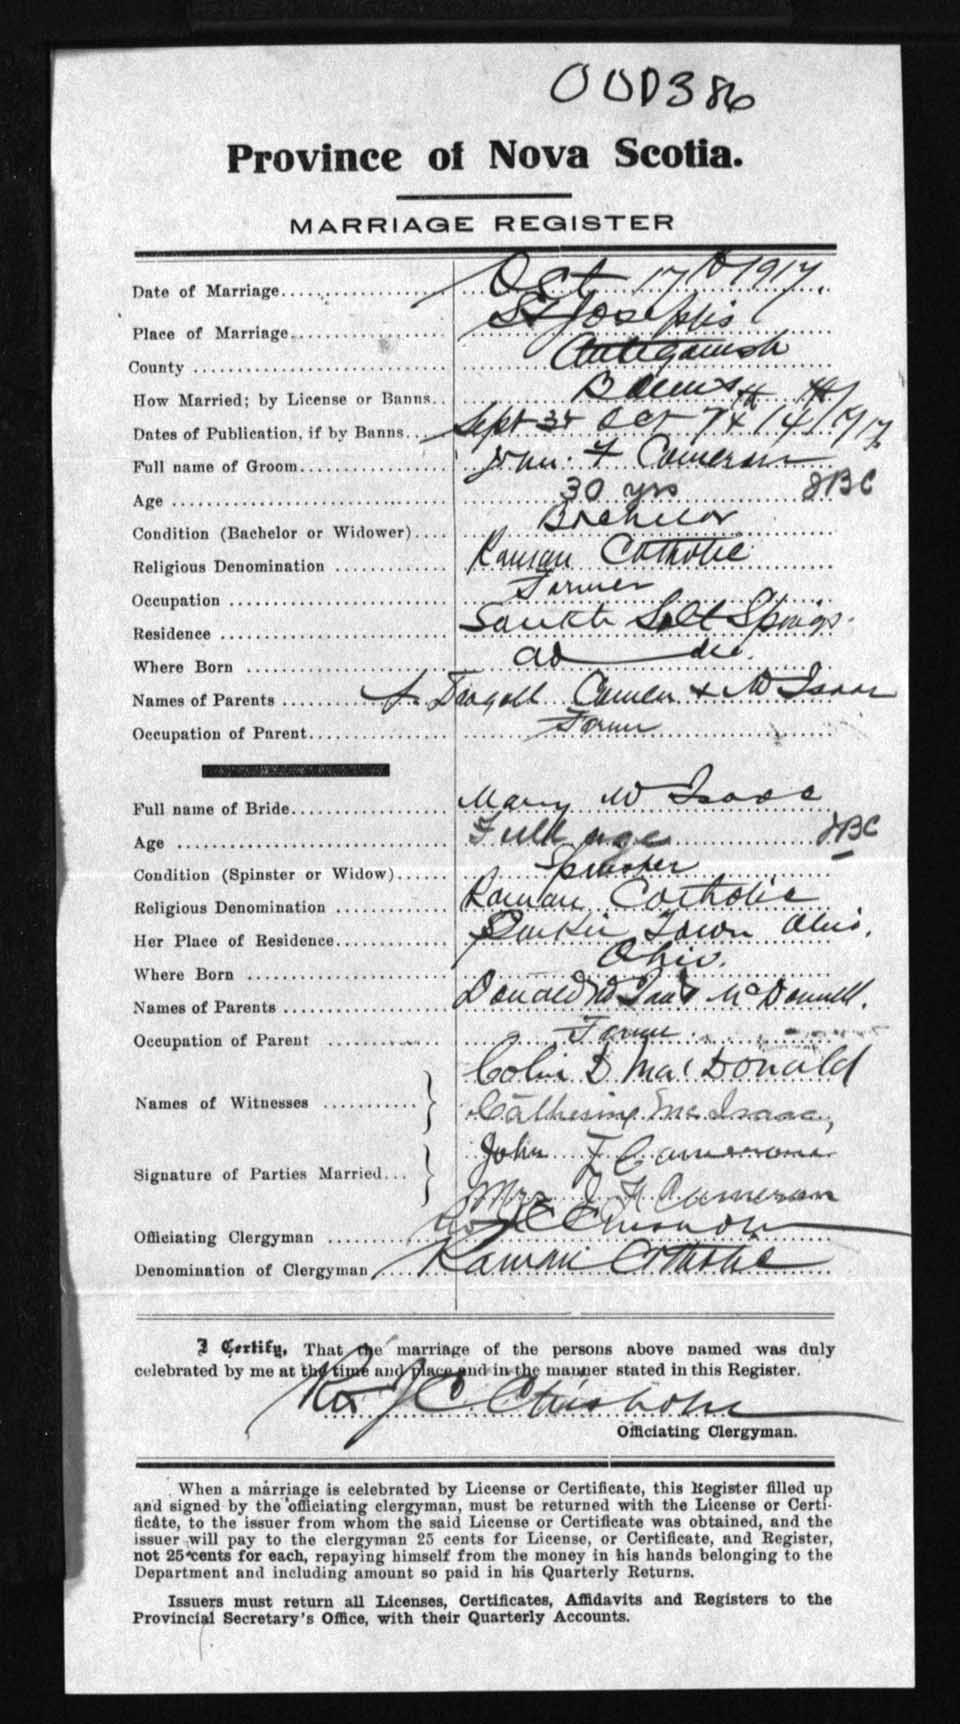 OUD386
Province of Nova Scotia.
MARRIAGE REGISTER
Date of Marriage Oct 17th 1917.
Place of Marriage St Josephs
County Antigonish
How Married; by License or Banns Banns
Dates of Publication, if by Banns Sept 30 Oct 7th 14th 1917
Full name of Groom John F Cameron
Age 30 yrs JBC
Condition (Bachelor or Widower) Bachelor
Religious Denomination Roman Catholic
Occupation Farmer
Residence South Salt Springs
Where Born do
Names of Parents Dougall Cameron + McIsaac
Occupation of Parent Farmer
Full name of Bride Mary McIsaac
Age Full age JBC
Condition (Spinster or Widow) Spinster
Religious Denomination Roman Catholic
Her Place of Residence Town Ohio.
Where Born Ohio.
Names of Parents Donald McIsaac McDonnell.
Occupation of Parent Farmer
Names of Witnesses Colin D MacDonald
Catherine McIsaac,
Signature of Parties Married John F Cameron
Mrs J F Cameron
Officiating Clergyman Rev J C Chisholm
Denomination of Clergyman Roman Catholic
I Certify, That the marriage of the persons above named was duly
celebrated by me at the time and place and in the manner stated in this Register.
Rev J C Chisholm
Officiating Clergyman.
When a marriage is celebrated by License or Certificate, this Register filled up
and signed by the officiating clergyman, must be returned with the License or Certi-
ficate, to the issuer from whom the said License or Certificate was obtained, and the
issuer will pay to the clergyman 25 cents for License, or Certificate, and Register,
not 25 cents for each, repaying himself from the money in his hands belonging to the
Department and including amount so paid in his Quarterly Returns.
Issuers must return all Licenses, Certificates, Affidavits and Registers to the
Provincial Secretary's Office, with their Quarterly Accounts.